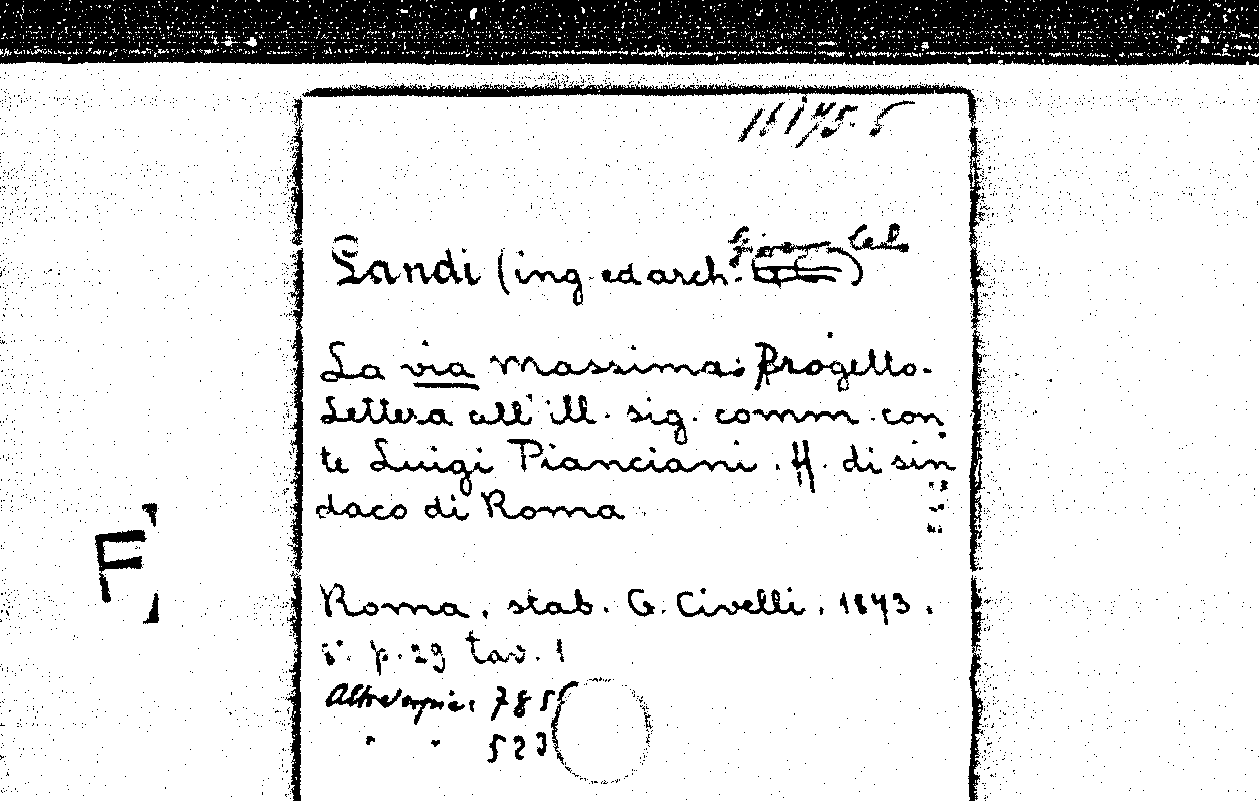 Landi (ing. ed arch.
La via Massima: Progetto.
Lettera all'ill. sig. comm. con
te Luigi Pianciani. ff. di sin
daco di Roma
F
Roma, stab. G. Civelli, 1873.
8°. p. 29 tav. 1
Altre copie: 785
" " 523